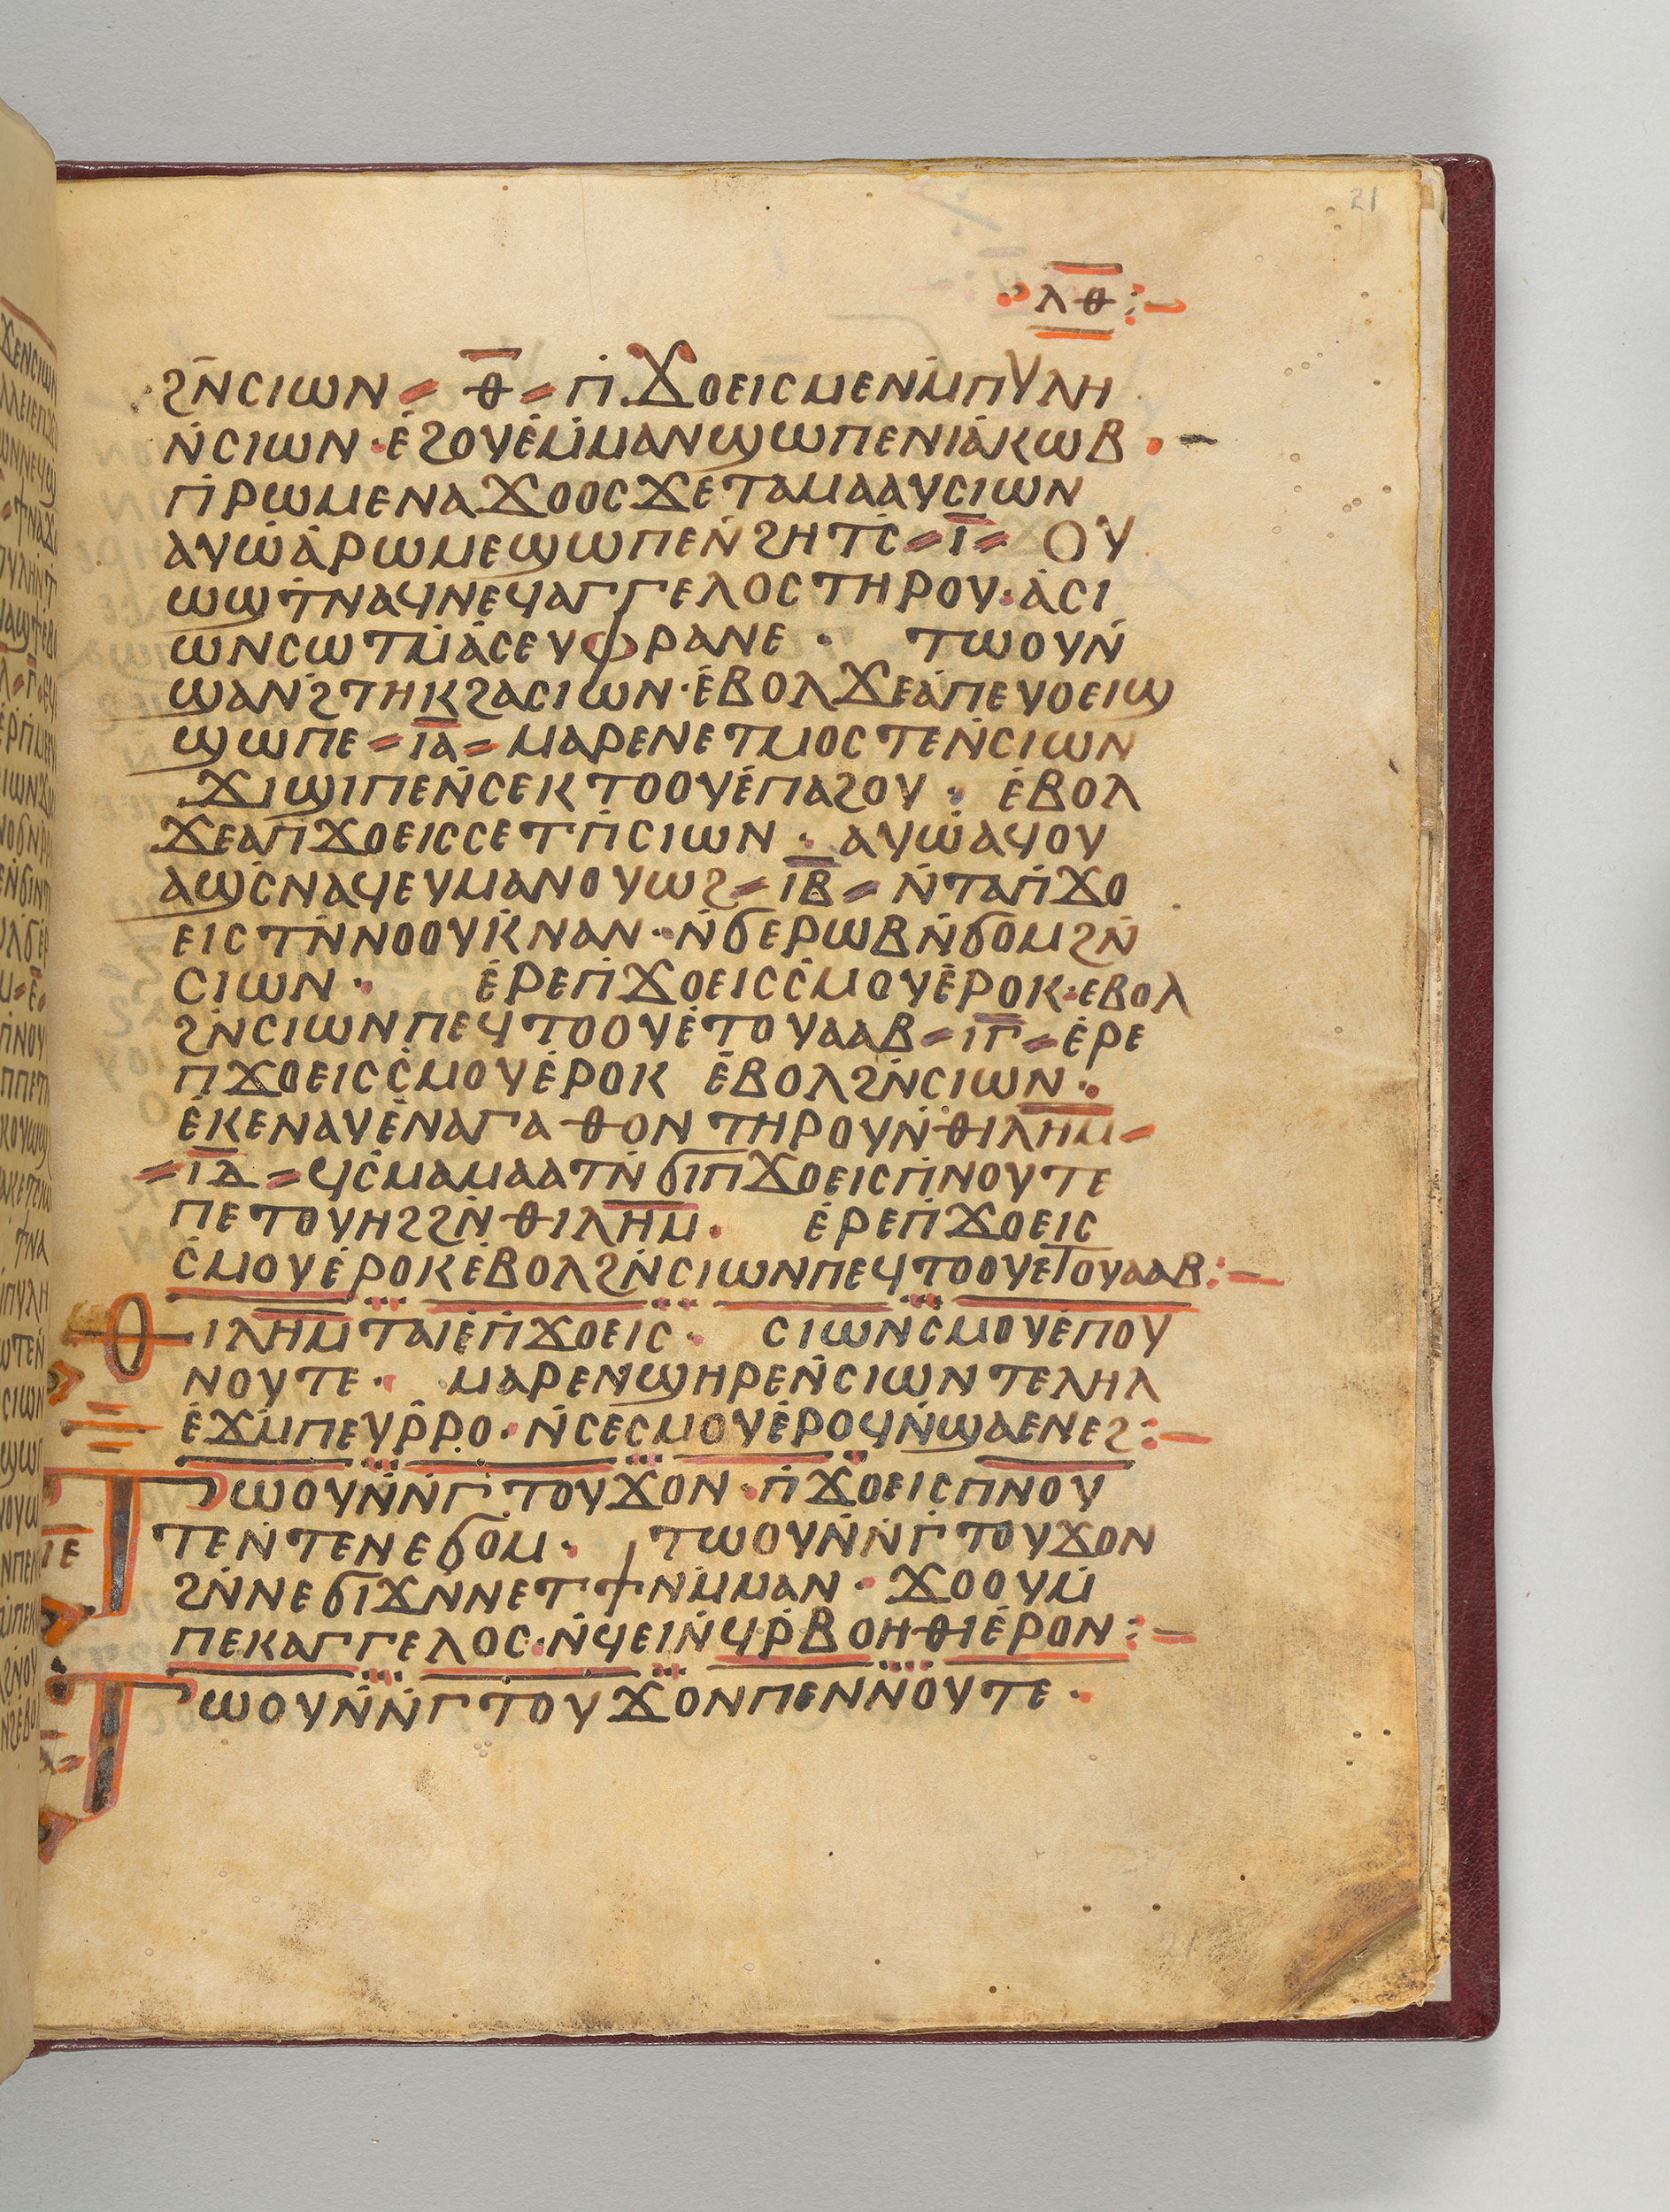 21
ⲗⲑ
ϩⲛ̄ⲥⲓⲱⲛ = ⲑ̅ = ⲡ̇ϫⲟⲉⲓⲥⲙⲉⲛⲙ̇ⲡⲩⲗⲏ
ⲛ̇ⲥⲓⲱⲛ · ⲉ̇ϩⲟⲩⲉ̇ⲙ̇ⲙⲁⲛϣⲱⲡⲉⲛⲓⲁ̇ⲕⲱⲃ ·
ⲡ̇ⲣⲱⲙⲉⲛⲁϫⲟⲟⲥϫⲉⲧⲁⲙⲁⲁⲩⲥⲓⲱⲛ
ⲁⲩⲱ̇ⲁ̇ⲣⲱⲙⲉϣⲱⲡⲉⲛ̇ϩⲏⲧⲥ̇ = ⲓ̅ = ⲟⲩ
ⲱϣⲧ̇ⲛⲁϥⲛⲉϥⲁⲅⲅⲉⲗⲟⲥⲧⲏⲣⲟⲩ · ⲁ̇ⲥⲓ
ⲱⲛⲥⲱⲧⲙ̇ⲁ̇ⲥⲉⲩⲫⲣⲁⲛⲉ · ⲧⲱⲟⲩⲛ̇
ϣⲁⲛ̇ϩⲧⲏⲕϩⲁⲥⲓⲱⲛ · ⲉ̇ⲃⲟⲗϫⲉⲁ̇ⲡⲉⲩⲟⲉⲓϣ
ϣⲱⲡⲉ = ⲓ̅ⲁ̅ = ⲙⲁⲣⲉⲛⲉⲧⲙⲟⲥⲧⲉⲛ̇ⲥⲓⲱⲛ
ϫⲓϣⲓⲡⲉⲛ̇ⲥⲉⲕⲧⲟⲟⲩⲉ̇ⲡⲁϩⲟⲩ · ⲉ̇ⲃⲟⲗ
ϫⲉⲁⲡ̇ϫⲟⲉⲓⲥⲥⲉⲧⲡ̇ⲥⲓⲱⲛ · ⲁⲩⲱ̇ⲁϥⲟⲩ
ⲁϣⲥ̇ⲛⲁϥⲉⲩⲙⲁⲛⲟⲩⲱϩ = ⲓ̅ⲃ̅ = ⲛ̇ⲧⲁⲡ̇ϫⲟ
ⲉⲓⲥⲧⲛ̇ⲛⲟⲟⲩⲕ̇ⲛⲁⲛ · ⲛ̇ϭⲉⲣⲱⲃⲛ̇ϭⲟⲙϩⲛ̇
ⲥⲓⲱⲛ · ⲉ̇ⲣⲉⲡ̇ϫⲟⲉⲓⲥⲥ̇ⲙⲟⲩⲉ̇ⲣⲟⲕ · ⲉⲃⲟⲗ
ϩⲛ̇ⲥⲓⲱⲛⲡⲉϥⲧⲟⲟⲩⲉ̇ⲧⲟⲩⲁⲁⲃ = ⲓ̅ⲅ̅ = ⲉ̇ⲣⲉ
ⲡϫⲟⲉⲓⲥⲥ̇ⲙⲟⲩⲉ̇ⲣⲟⲕ ⲉ̇ⲃⲟⲗϩⲛ̇ⲥⲓⲱⲛ ·
ⲉ̇ⲕⲉⲛⲁⲩⲉ̇ⲛⲁⲅⲁⲑⲟⲛⲧⲏⲣⲟⲩⲛ̇ⲑⲓⲗ̅ⲏ̅ⲙ̅ =
= ⲓ̅ⲇ̅ = ϥⲥ̇ⲙⲁⲙⲁⲁⲧⲛ̇ϭⲓⲡϫⲟⲉⲓⲥⲡ̇ⲛⲟⲩⲧⲉ
ⲡⲉⲧⲟⲩⲏϩϩⲛ̇ⲑⲓⲗ̅ⲏ̅ⲙ̅ · ⲉ̇ⲣⲉⲡ̇ϫⲟⲉⲓⲥ
ⲥ̇ⲙⲟⲩⲉ̇ⲣⲟⲕⲉ̇ⲃⲟⲗϩⲛ̇ⲥⲓⲱⲛⲡⲉϥⲧⲟⲟⲩⲉⲧⲟⲩⲁⲁⲃ:—
ⲑⲓⲗ̅ⲏ̅ⲙ̅ⲧⲁⲓⲉ̇ⲡ̇ϫⲟⲉⲓⲥ · ⲥⲓⲱⲛⲥ̇ⲙⲟⲩⲉ̇ⲡⲟⲩ
ⲛⲟⲩⲧⲉ · ⲙⲁⲣⲉⲛϣⲏⲣⲉⲛ̇ⲥⲓⲱⲛⲧⲉⲗⲏⲗ
ⲉ̇ϫⲙ̇ⲡⲉⲩⲣ̇ⲣⲟ · ⲛ̇ⲥⲉⲥⲙⲟⲩⲉ̇ⲣⲟϥⲛ̇ϣⲁⲉⲛⲉϩ:—
ⲧⲱⲟⲩⲛ̇ⲛ̇ⲅⲧⲟⲩϫⲟⲛ · ⲡ̇ϫⲟⲉⲓⲥⲡⲛⲟⲩ
ⲧⲉⲛ̇ⲧⲉⲛⲉϭⲟⲙ · ⲧⲱⲟⲩⲛ̇ⲛ̇ⲅ̇ⲧⲟⲩϫⲟⲛ
ϩⲛ̇ⲛⲉϭⲓϫⲛ̇ⲛⲉⲧϯⲛⲙ̇ⲙⲁⲛ · ϫⲟⲟⲩⲙ̇
ⲡⲉⲕⲁⲅⲅⲉⲗⲟⲥ · ⲛ̇ϥⲉⲓⲛ̇ϥⲣ̇ⲃⲟⲏⲑⲓⲉ̇ⲣⲟⲛ:—
ⲧⲱⲟⲩⲛ̇ⲛ̇ⲅⲧⲟⲩϫⲟⲛⲡⲉⲛⲛⲟⲩⲧⲉ ·